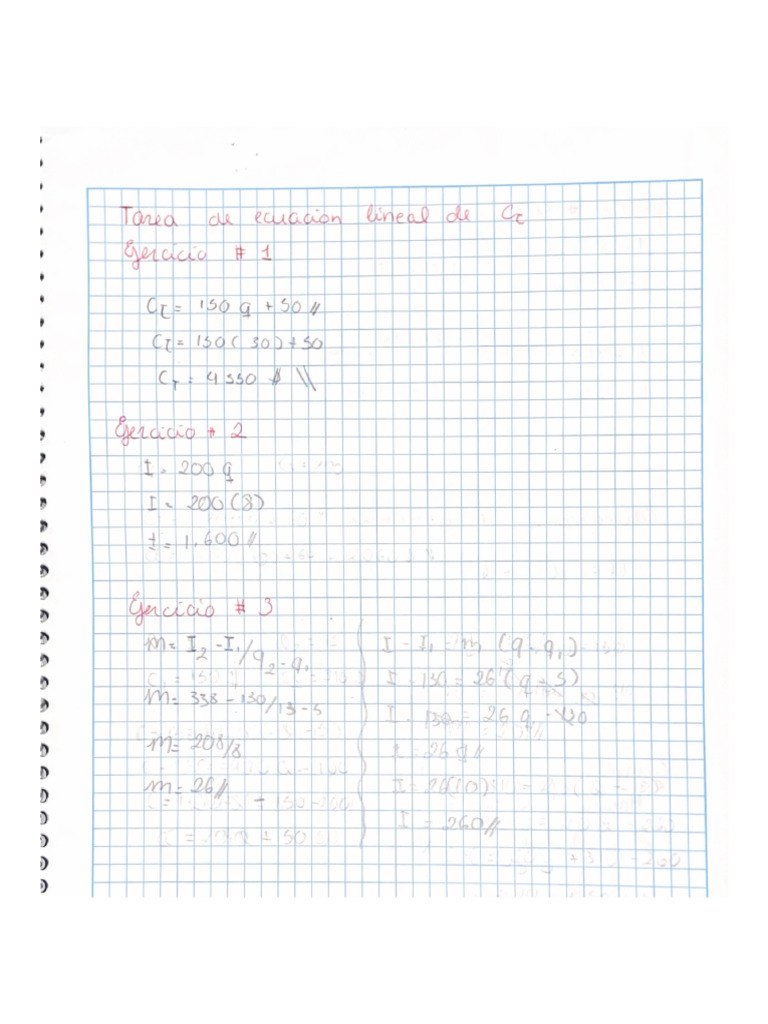 Tarea de ecuacion lineal de Ct
Ejercicio # 1
CI = 150 q + 50 //
CI = 150 ( 30) + 50
CT = 4550 $ \\
Ejercicio # 2
I = 200 q
I = 200 (8)
I = 1.600 //
Ejercicio # 3
m = I2 - I1 / q2 - q1
m = 338 - 130 / 13 - 5
m = 208/8
m = 26 //
I - I1 = m (q - q1)
I - 130 = 26 (q - 5)
I - 130 = 26 q - 130
I = 26 q //
I = 26(10)
I = 260 //